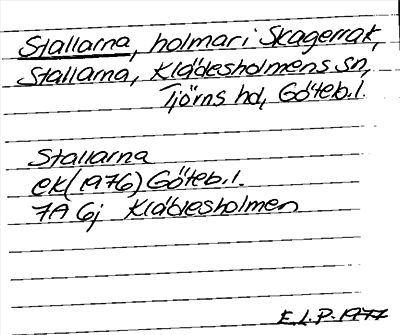 Stallarna, holmar i Skagerrak,
Stallarna, Klädesholmens sn,
Tjörns hd, Göteb.l.
Stallarna
ek(1976) Göteb.l.
7A 6j Klädesholmen
E.L.P. 1977